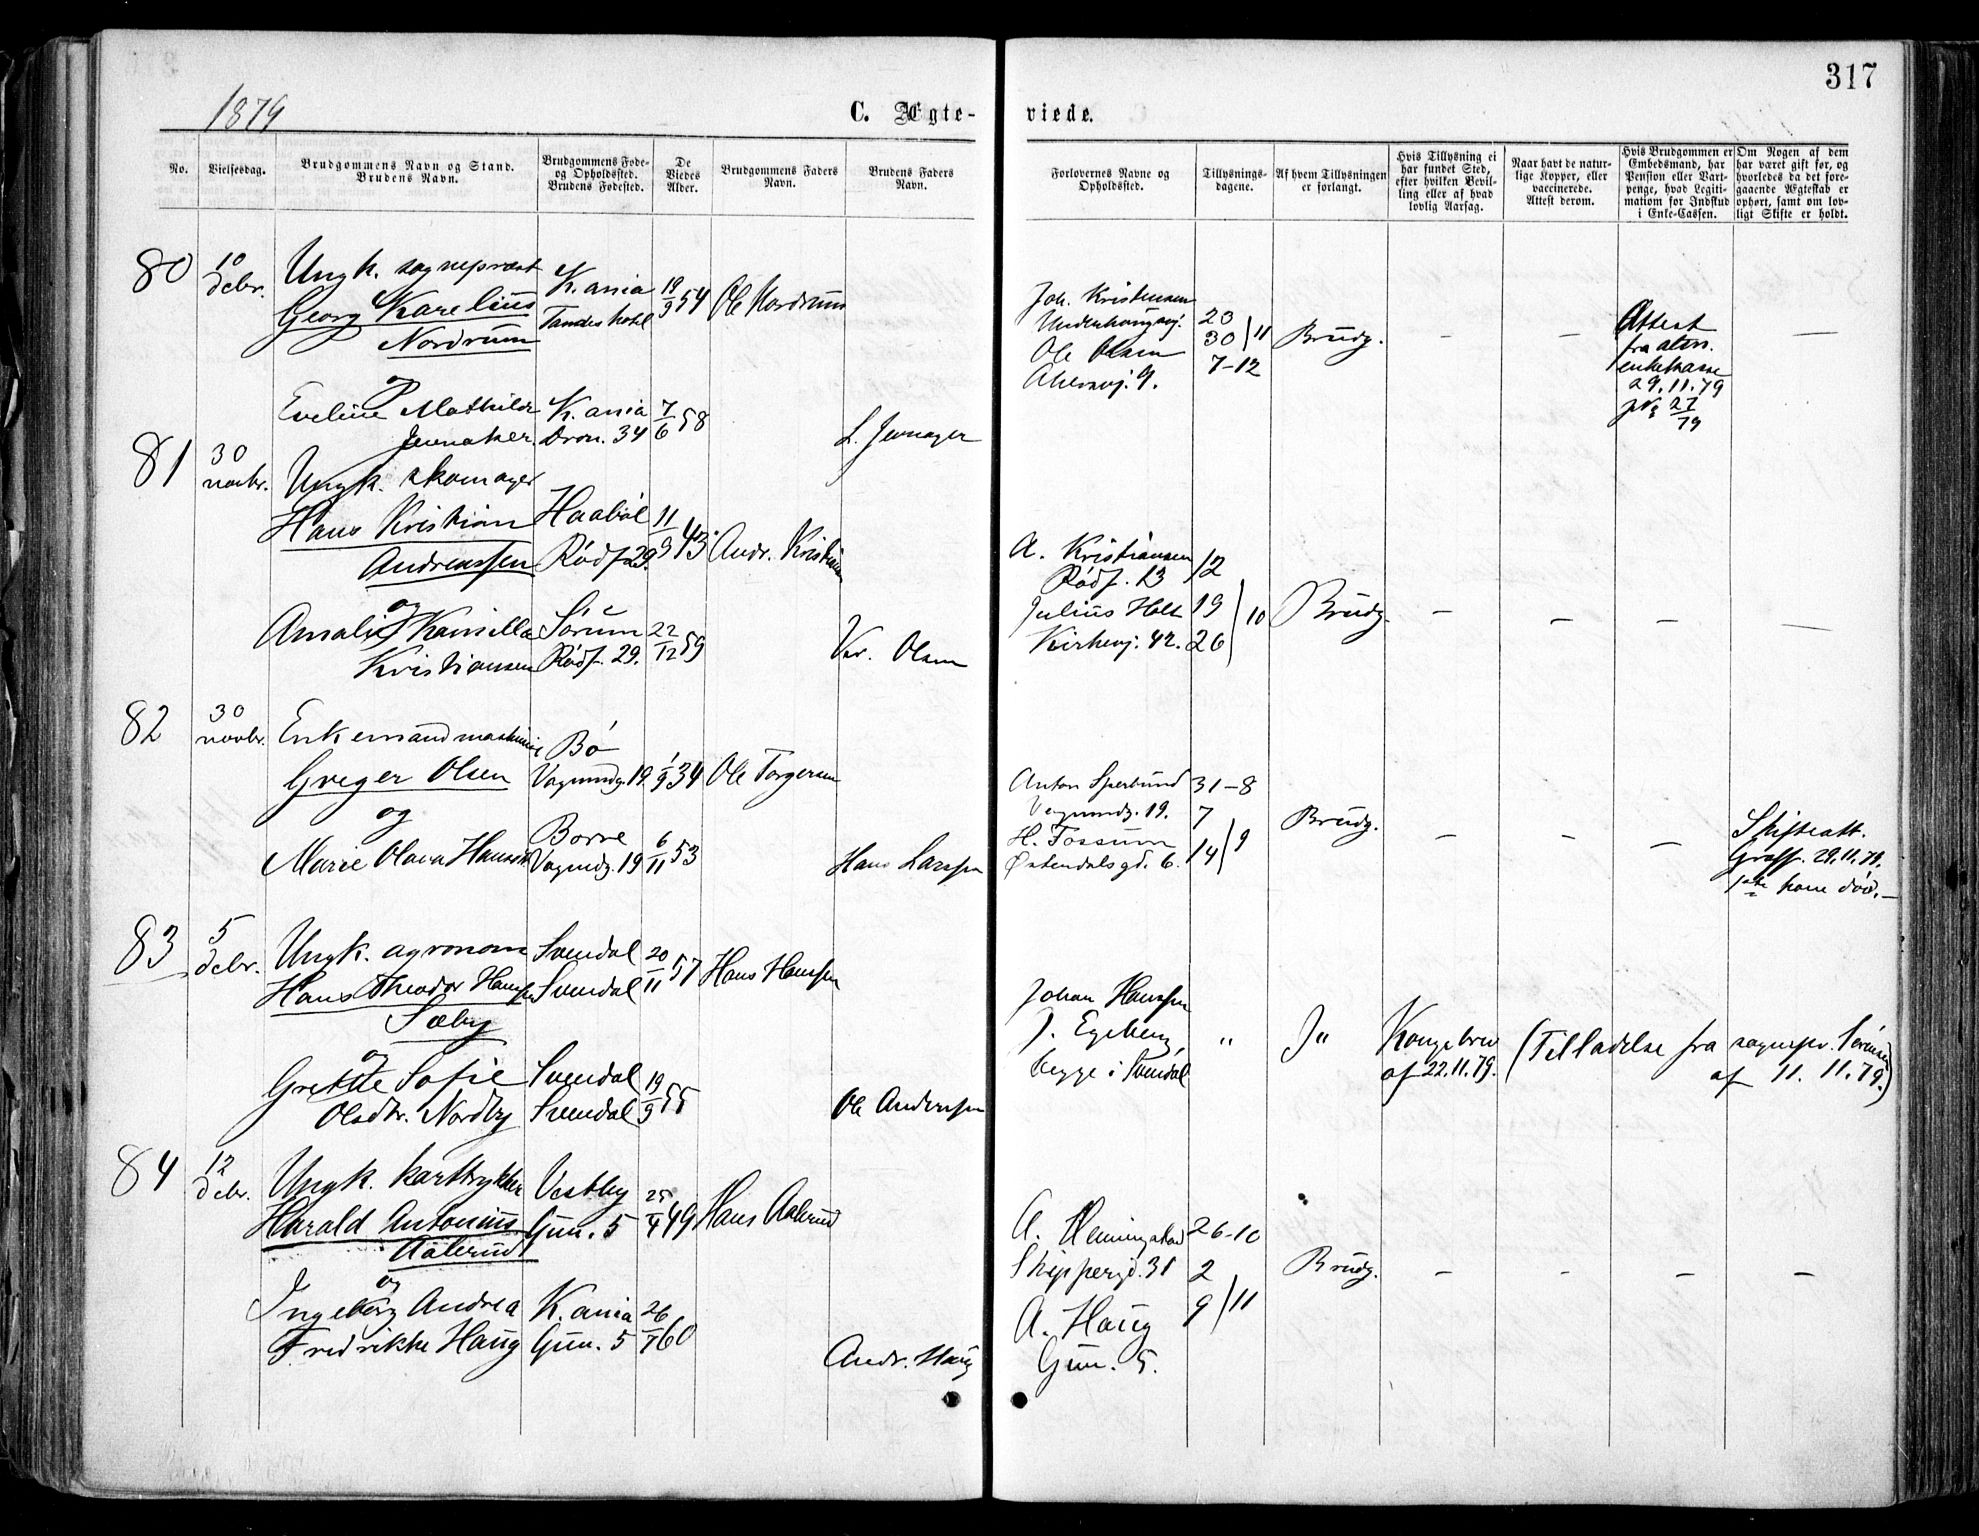 317
1879
C. Ægte-
viede.
No.
Vielsesdag.
Brudgommens Navn og Stand.
Brudens Navn.
Brudgommens Føde-
og Opholdssted.
Brudens Fødested.
De
Viedes
Alder.
Brudgommens Faders
Navn.
Brudens Faders
Navn.
Forlovernes Navne og
Opholdssted.
Tillysnings-
dagene.
Af hvem Tillysningen
er forlangt.
Hvis Tillysning ei
har fundet Sted,
efter hvilken Bevil-
ling eller af hvad
lovlig Aarsag.
Naar havt de natur-
lige Kopper, eller
vaccinerede.
Attest derom.
Hvis Brudgommen er
Embedsmand, har
Pension eller Vart-
penge, hvad Legiti-
mation for Indskud
i Enke-Cassen.
Om Nogen af dem
har været gift før, og
hvorledes da det fore-
gaaende Ægteskab er
ophørt, samt om lov-
ligt Skifte er holdt.
80
10
debr.
Ungk. sogneprest
Georg Karelius
Nordrum
og
Eveline Mathilde
Jevnaker.
K.ania
K.ania
Dron. 34
19/9 54
7/6 58
Ole Nordrum
L. Jevnager
Joh. Kristensen
Underhaugsvj.
Ole Olsen
Akersvj. 9.
23
30 / 11
7-12
Brudg.
-
-
Attest
fra alm.
enkekasse
29.11.79
21
79
-
81
30
novbr.
Ungk. skomager
Hans Kristian
Andreassen
og
Amalie Kamilla
Kristiansen
Haabøl
Rødf. 29.
Sørum
Rødf. 29.
11/9 43
22/12 59
Andr. Kristian
Kr. Olsen
A. Kristiansen
Rødf. 13
Julius Holt
Kirkevj. 42.
12
19
26 / 10
Brudg.
-
-
-
-
82
30
novbr.
Enkemand
Greger Olsen
og
Marie Olava Hansen
Bø
Vognmdg. 19
Borre
Vogmdg. 19
1/9 34
6/11 53
Ole Torgersen
Hans Larssen
Anton
Vognmndg. 19.
H. Fossum
Østendalsgd. 6.
31-8
7
14 / 9
Brudg.
-
-
-
Skifteatt.
29.11.79.
1ste kone død.-
83
5
debr.
Ungk. agronom
Hans Theodor Hanssen
Sæby
og
Grethe Sofie
Olsdtr. Nordby
Svendal
Svendal
Svendal
Svendal
20/11 57
19/9 55
Hans Hanssen
Ole Anderssen
Johan Hanssen
J. Egeberg,
begge i Svendal
"
"
Kongebrev
af 22.11.79.
(Tilladelse fra sognepr. Sørensen
af 11. 11.79.)
84
12
debr.
Ungk. karttrykker
Harald Antonius
Aalerud
og
Ingeborg Andrea
Fredrikke Haug
Vestby
Gun. 5
K.ania
Gun. 5
25/4 49
26/1 60
Hans Aalerud
Andr. Haug
A. Henningstad
Skippergd. 31
A. Haug
Gun. 5.
26-10
2
9 / 11
Brudg.
-
-
-
-